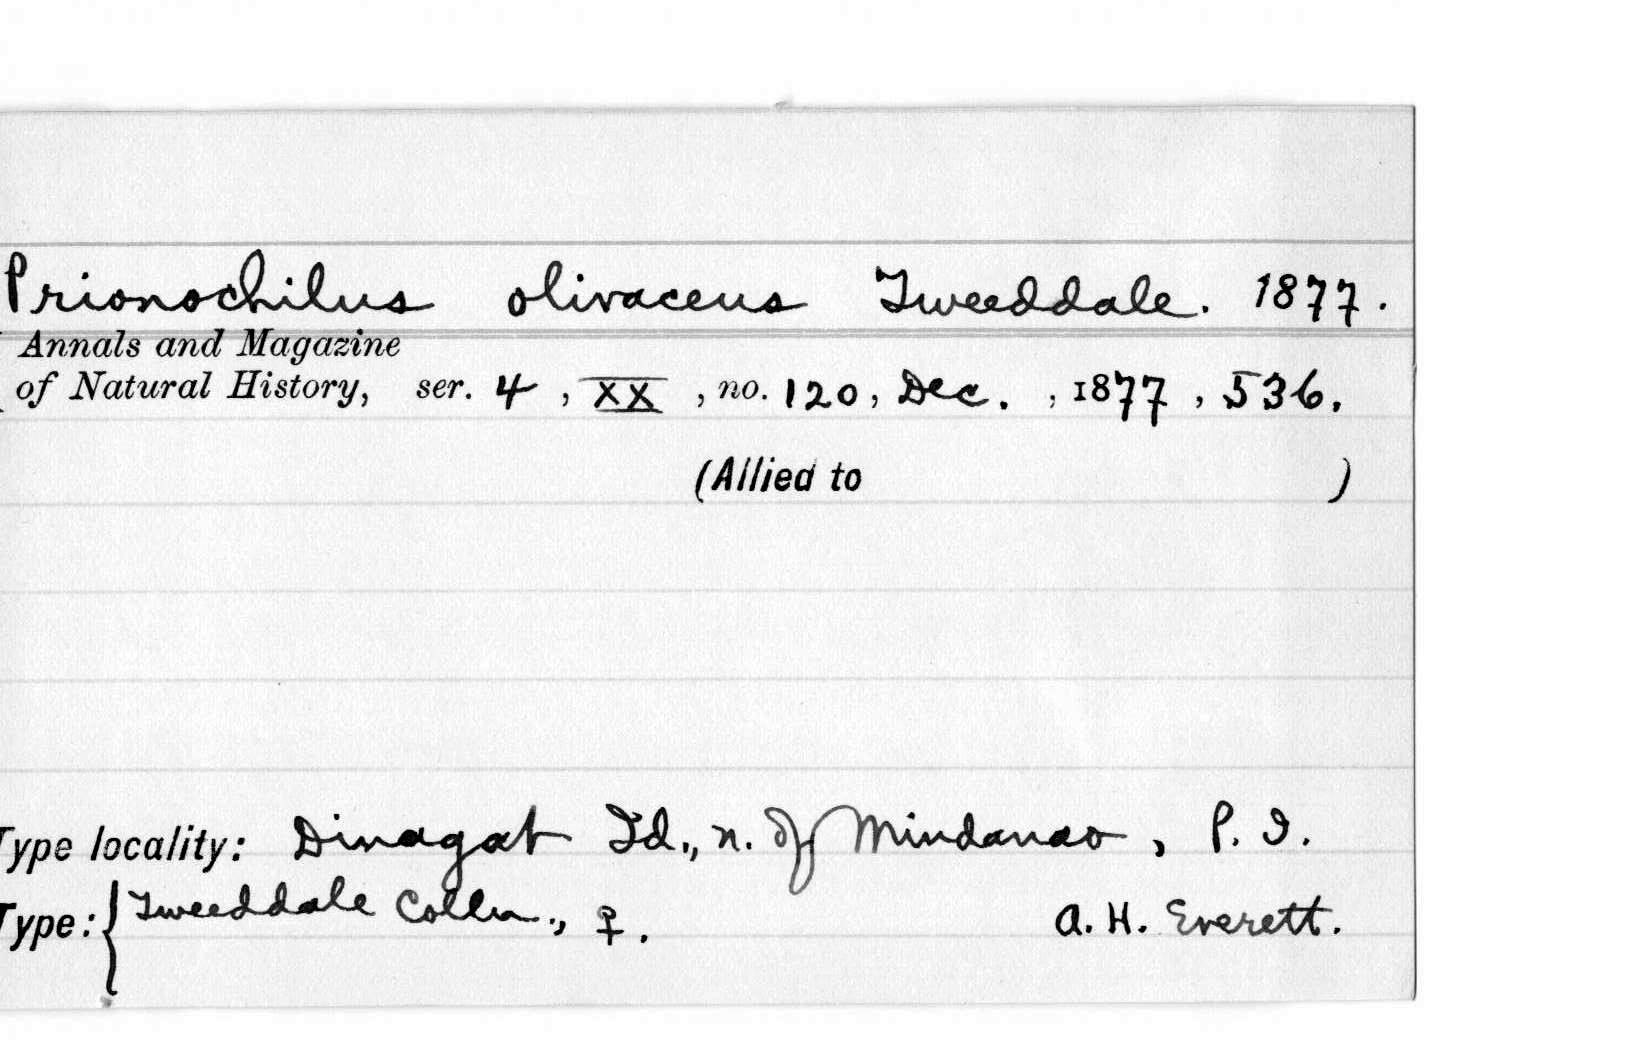 Prionochilus olivaceus Tweeddale. 1877.
Annals and Magazine
of Natural History, ser. 4, XX, no. 120, Dec., 1877, 536.
(Allied to )
Type locality: Dinagat Id., n. of Mindanao, P. I.
Type: { Tweeddale Colln., ♀. A. H. Everett.